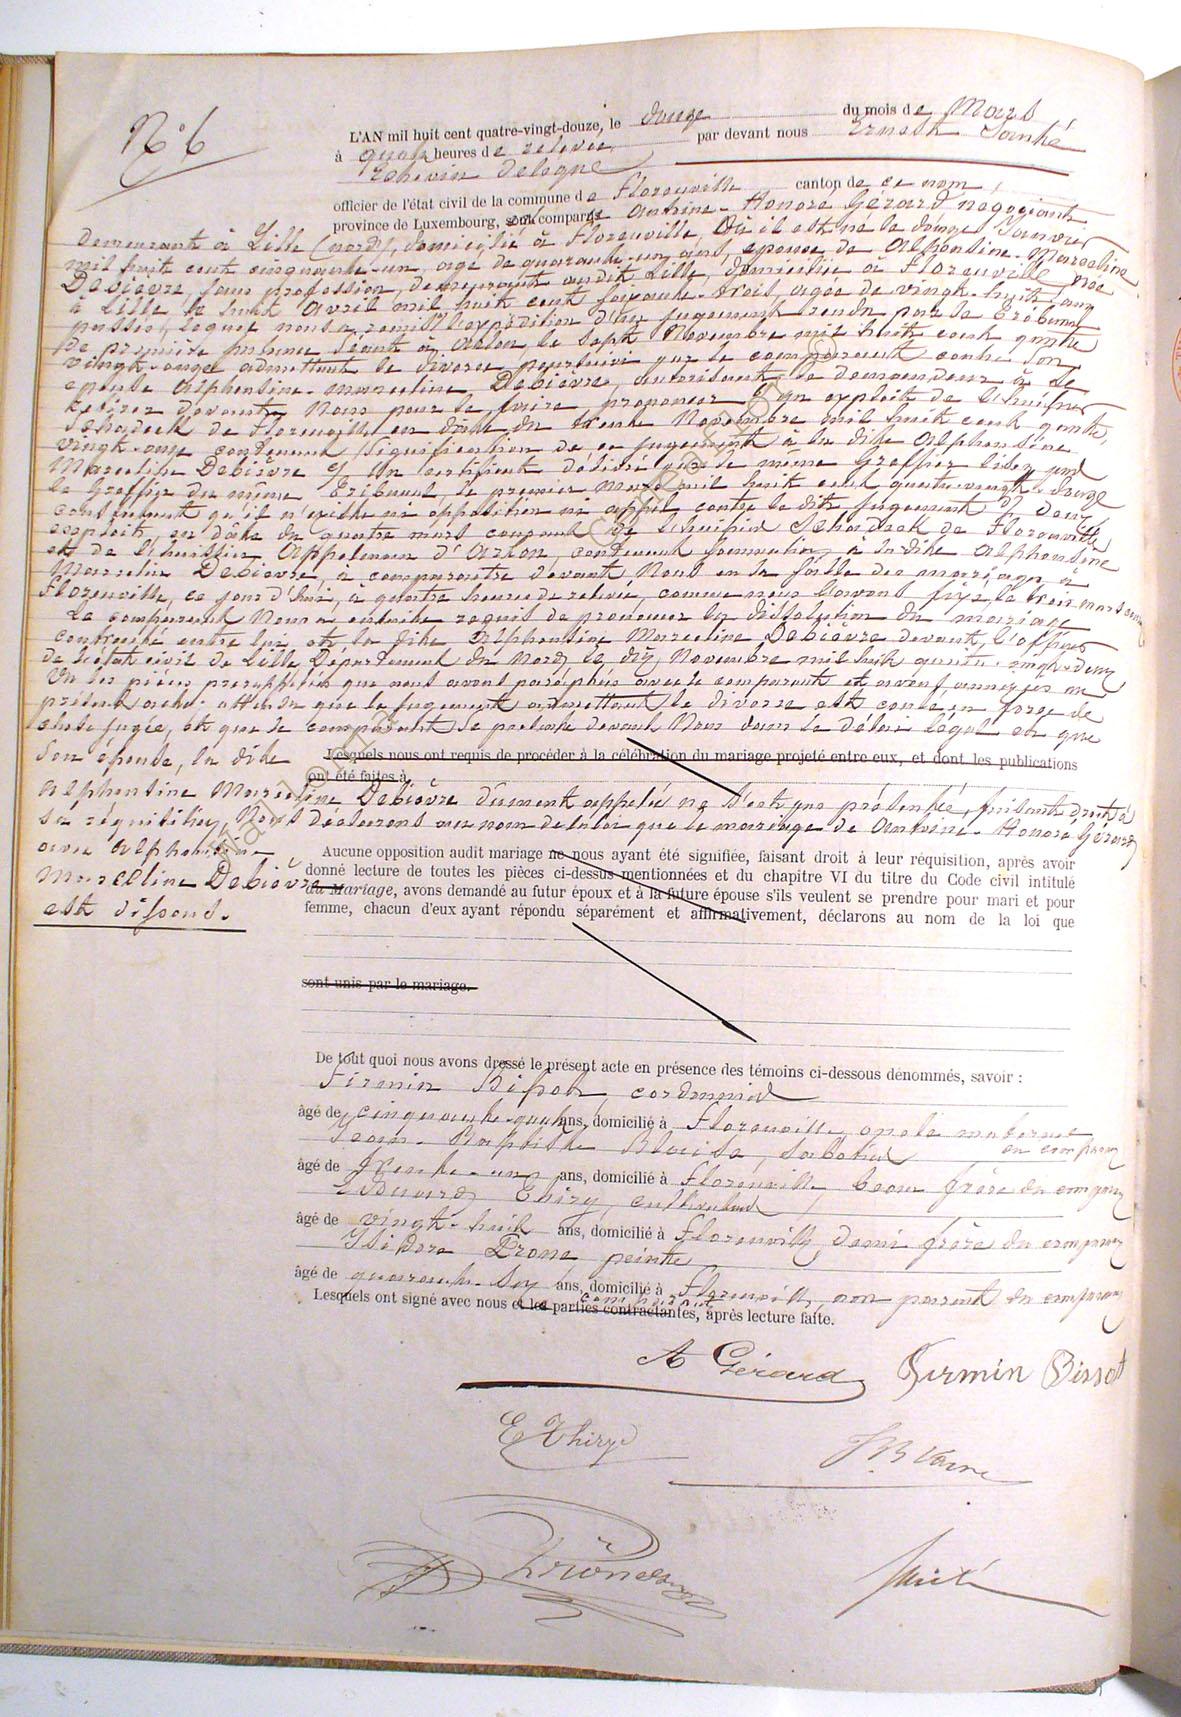 N° 6
L'AN mil huit cent quatre-vingt-douze, le douze du mois de Mars
à quatre heures de relevée par devant nous Ernest Sainté
Echevin délégué
officier de l'état civil de la commune de Florenville canton de ce nom,
province de Luxembourg, sont comparu Antoine-Honoré Gérard négociant
demeurant à Lille (nord), domicilié à Florenville, où il est né le douze Janvier
mil huit cent cinquante-un, agé de quarante-un ans, epoux de Alphonsine-Marceline
Debièvre, sans profession, demeurant audit Lille, domiciliée à Florenville, née
à Lille, le huit Avril mil huit cent soixante-trois, agée de vingt-huit ans
passés, lequel nous a remis 1° l'expédition d'un jugement rendu par le Tribunal
de première instance séant à Arlon le sept Novembre mil huit cent quatre
vingt-onze admettant le divorce poursuivi par le comparant contre son
epouse Alphonsine-Marceline Debièvre, autorisant le demandeur à se
retirer devant Nous pour le faire prononcer un exploit de l'huissier
Schoedack de Florenville en date du trente Novembre mil huit cent quatre
vingt-onze contenant signification de ce jugement à la dite Alphonsine
Marceline Debièvre Un certificat délivré par le même Greffier
le Greffier du même Tribunal, le premier Mars mil huit cent quatre-vingt-douze
constatant qu'il n'existe ni opposition ni appel contre le dit jugement deux
exploits, en date du quatre mars courant de l'huissier Schoedack de Florenville
et de l'huissier Appelman d'Arlon, contenant sommation à la dite Alphonsine
Marceline Debièvre, à comparaitre devant Nous en la salle des mariages à
Florenville, ce jour d'hui, à quatre heures de relevée, comme nous l'avons fixé, le trois mars
Le comparant Nous a ensuite requis de prononcer la dissolution du mariage
contracté entre lui et la dite Alphonsine Marceline Debièvre devant l'officier
de l'état civil de Lille Département du Nord, le dix Novembre mil huit
Vu les pièces que nous avons paraphées avec le comparant et avons annexées au
présent acte: attendu que le jugement admettant le divorce est coulé en force de
chose jugée, et que le comparant se présente devant Nous dans le délai légal et que
son épouse, la dite
Lesquels nous ont requis de procéder à la célébration du mariage projeté entre eux, et dont les publications
ont été faites à
Alphonsine Marceline Debièvre dûment appelée ne s'est pas présentée, faisant droit à
sa réquisition, Nous déclarons au nom de la loi que le mariage de Antoine-Honoré Gérard
avec Alphonsine
Marceline Debièvre
est dissous.
Aucune opposition audit mariage ne nous ayant été signifiée, faisant droit à leur réquisition, après avoir
donné lecture de toutes les pièces ci-dessus mentionnées et du chapitre VI du titre du Code civil intitulé
du Mariage, avons demandé au futur époux et à la future épouse s'ils veulent se prendre pour mari et pour
femme, chacun d'eux ayant répondu séparément et affirmativement, déclarons au nom de la loi que
sont unis par le mariage.
De tout quoi nous avons dressé le présent acte en présence des témoins ci-dessous dénommés, savoir :
Firmin Bissot, cordonnier
âgé de cinquante-quatre ans, domicilié à Florenville, oncle maternel
du comparant
Jean-Baptiste Blaise, sabotier
âgé de trente-un ans, domicilié à Florenville, beau frère du comparant
Edouard Thiry, cultivateur
âgé de vingt-huit ans, domicilié à Florenville, demi frère du comparant
Isidore Drone peintre
âgé de quarante-six ans, domicilié à Florenville, non parent du comparant
Lesquels ont signé avec nous et les parties contractantes, après lecture faite.
comparant
A Gérard Firmin Bissot
E Thiry